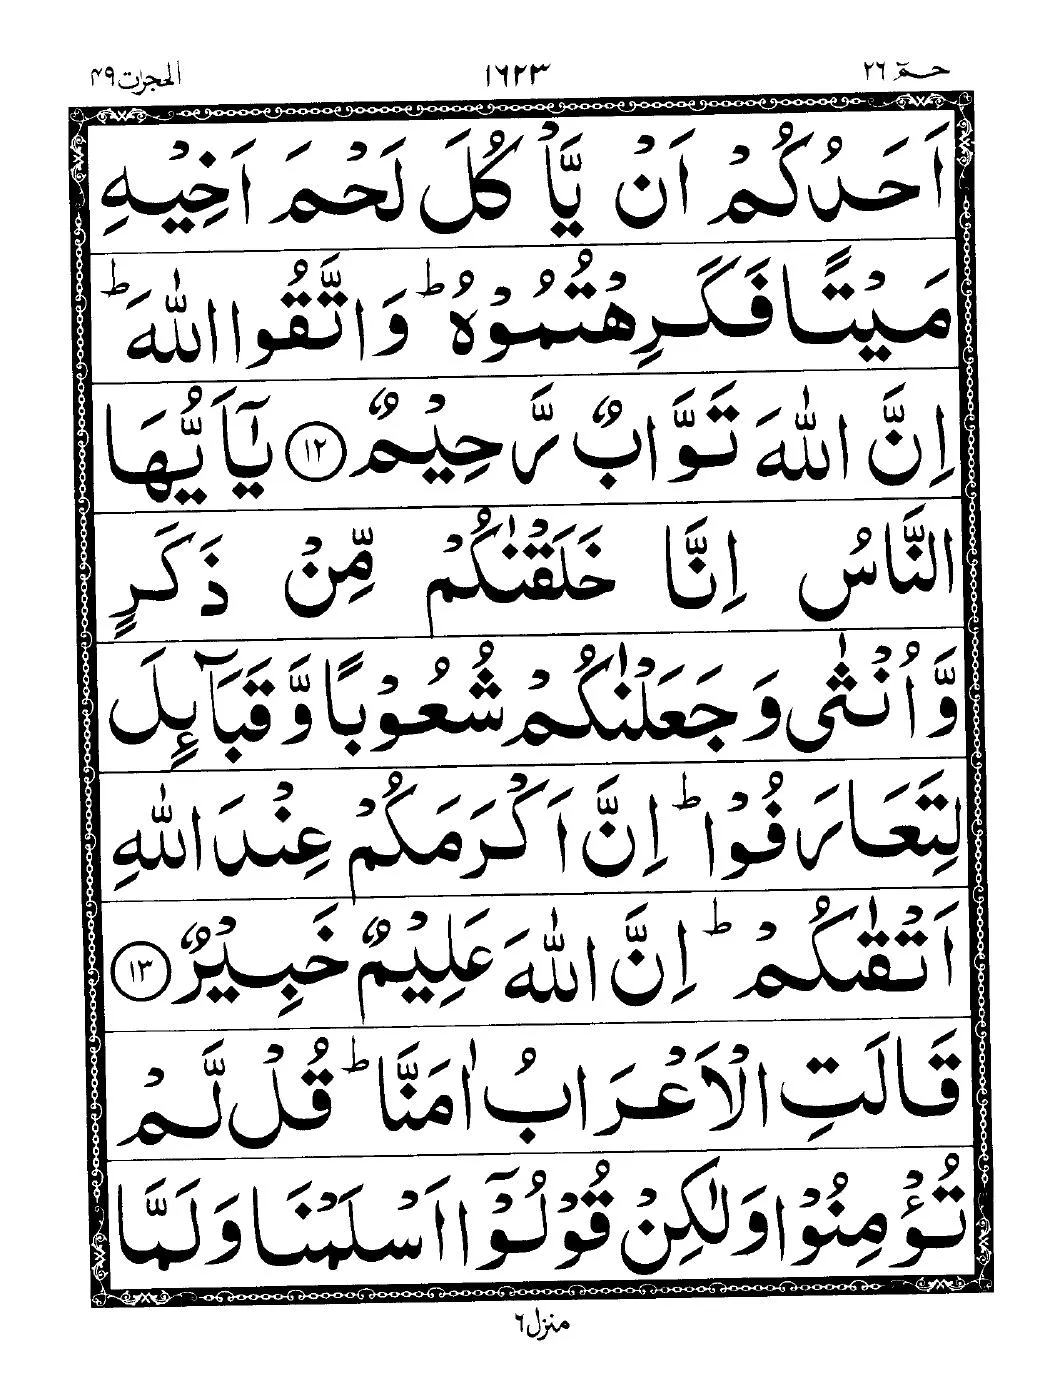 حٰمٓ ٢٦
١٦٢٣
الحجرٰت ٤٩
اَحَدُكُمْ اَنْ يَّاْ كُلَ لَحْمَ اَخِيْهِ
مَيْتًا فَكَرِهْتُمُوْهُ ؕ وَ اتَّقُوا اللّٰهَ ؕ
اِنَّ اللّٰهَ تَوَّابٌ رَّحِيْمٌ ۱۲ يٰۤاَيُّهَا
النَّاسُ اِنَّا خَلَقْنٰكُمْ مِّنْ ذَكَرٍ
وَّ اُنْثٰى وَ جَعَلْنٰكُمْ شُعُوْبًا وَّ قَبَآئِلَ
لِتَعَارَفُوْا ؕ اِنَّ اَكْرَمَكُمْ عِنْدَ اللّٰهِ
اَتْقٰىكُمْ ؕ اِنَّ اللّٰهَ عَلِيْمٌ خَبِيْرٌ ۱۳
قَالَتِ الْاَعْرَابُ اٰمَنَّا ؕ قُلْ لَّمْ
تُؤْمِنُوْا وَلٰكِنْ قُوْلُوْۤا اَسْلَمْنَا وَلَمَّا
منزل ٦